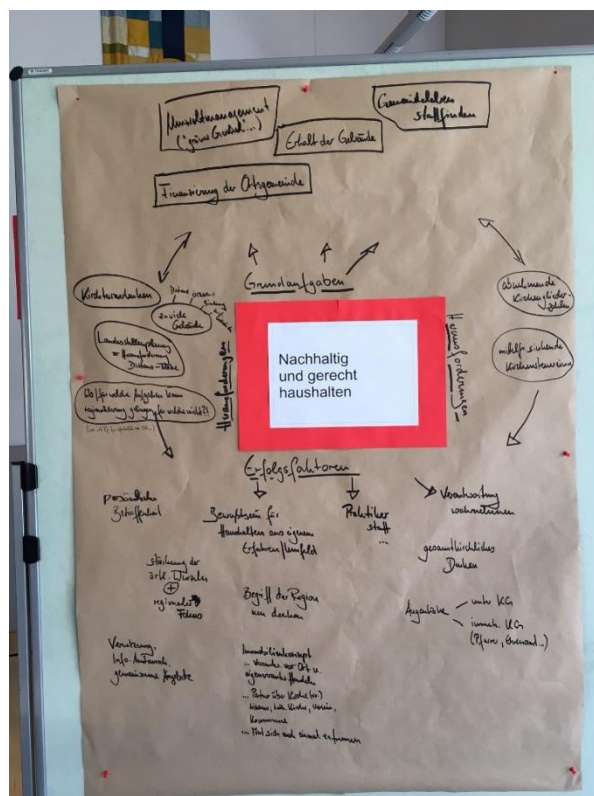 Umweltmanagement
("grüner Gockel"...)
Gemeindeleben
stattfinden
Erhalt der Gebäude
Finanzierung der Ortsgemeinde
Grundaufgaben
Kirchturmdenken
zu viele
Gebäude
Landesstellenplanung
= Herausforderung
Wofür welche Aufgaben kann
Regionalisierung gelingen, für welche nicht?!
Herausforderungen
Nachhaltig
und gerecht
haushalten
Herausforderungen
abnehmende
Kirchenglieder-
zahlen
mittelfr. sinkende
Kirchensteuereinn.
Erfolgsfaktoren
persönliche
Betroffenheit
Bewußtsein für
Haushalten aus eigenem
Erfahren/Umfeld
Praktiker
statt
...
Verantwortung
wahrnehmen
gesamtkirchliches
Denken
Stärkung der
örtl. Wurzeln
+
regionaler
Fokus
Begriff der Region
neu denken
Augenhöhe
unter KG
innerh. KG
(Pfarrer, Ehrenamt...)
Vernetzung,
Info. Austausch
gemeinsame Angebote
Immobilienkonzept
... Versuche vor Ort u.
eigenverantw. Handeln
... Partner über Kirche (ev.)
hinaus, kath. Kirche, Verein,
Kommune
... Mut sich auch einmal zu trennen